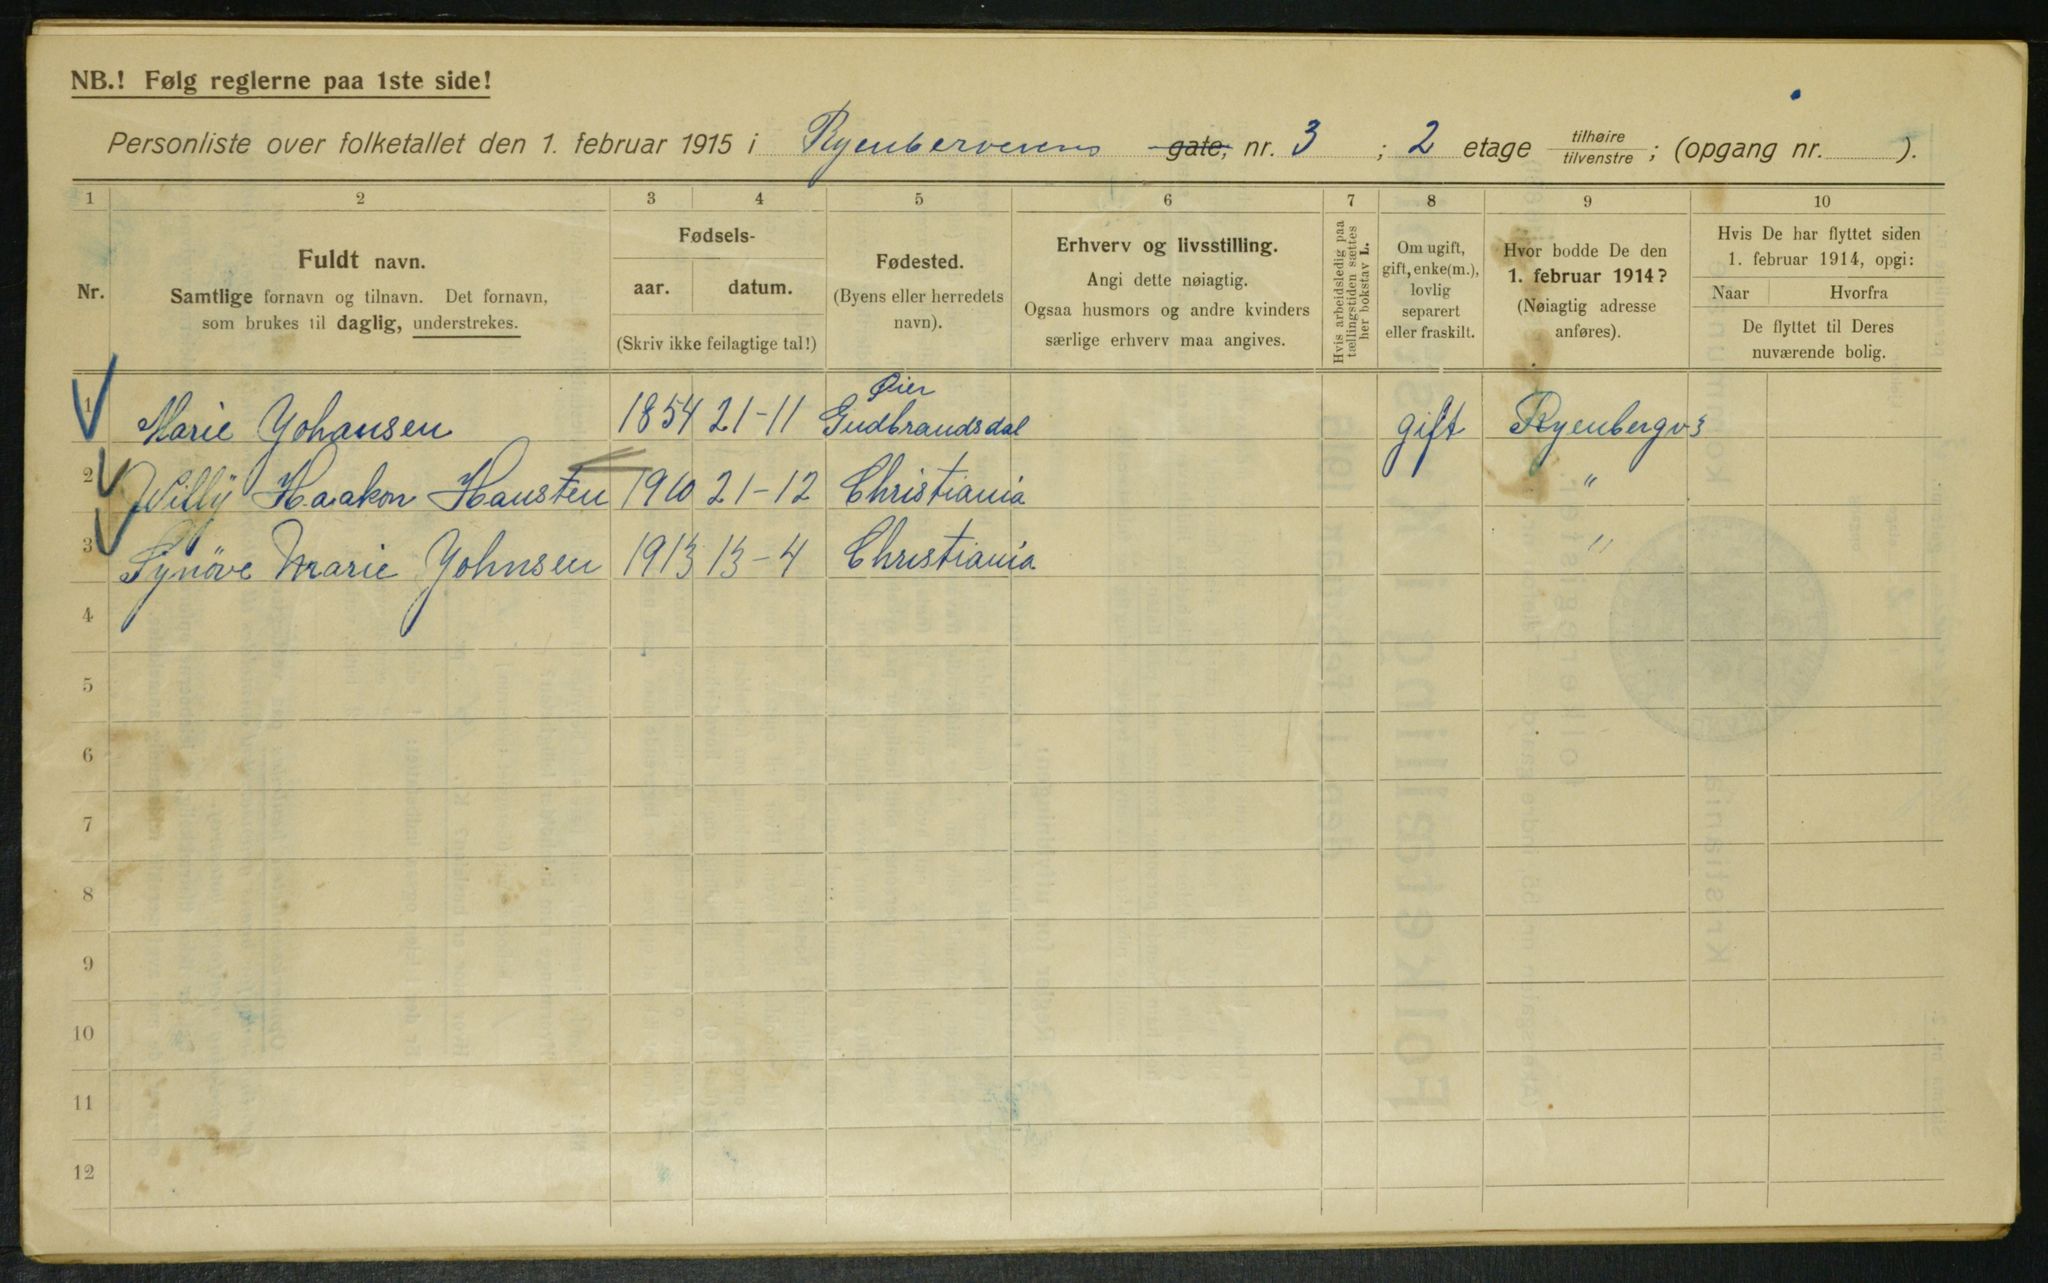 NB.! Følg reglerne paa 1ste side!
Personliste over folketallet den 1. februar 1915 i Ryenberveiens gate, nr. 3 ; 2 etage tilhøire / tilvenstre ; (opgang nr. ).
1 2 3 4 5 6 7 8 9 10
Nr.
Fuldt navn.
Samtlige fornavn og tilnavn. Det fornavn,
som brukes til daglig, understrekes.
Fødsels-
aar. datum.
(Skriv ikke feilagtige tal!)
Fødested.
(Byens eller herredets
navn).
Erhverv og livsstilling.
Angi dette nøiagtig.
Ogsaa husmors og andre kvinders
særlige erhverv maa angives.
Hvis arbeidsledig paa
tællingstiden sættes
her bokstav L.
Om ugift,
gift, enke(m.),
lovlig
separert
eller fraskilt.
Hvor bodde De den
1. februar 1914?
(Nøiagtig adresse
anføres).
Hvis De har flyttet siden
1. februar 1914, opgi:
Naar Hvorfra
De flyttet til Deres
nuværende bolig.
1 Marie Johansen 1854 21-11 Øier Gudbrandsdal gift Ryenbergv 3
2 Willy Haakon Hansten 1910 21-12 Christiania "
3 Synöve Marie Johnsen 1913 13-4 Christiania "
4
5
6
7
8
9
10
11
12